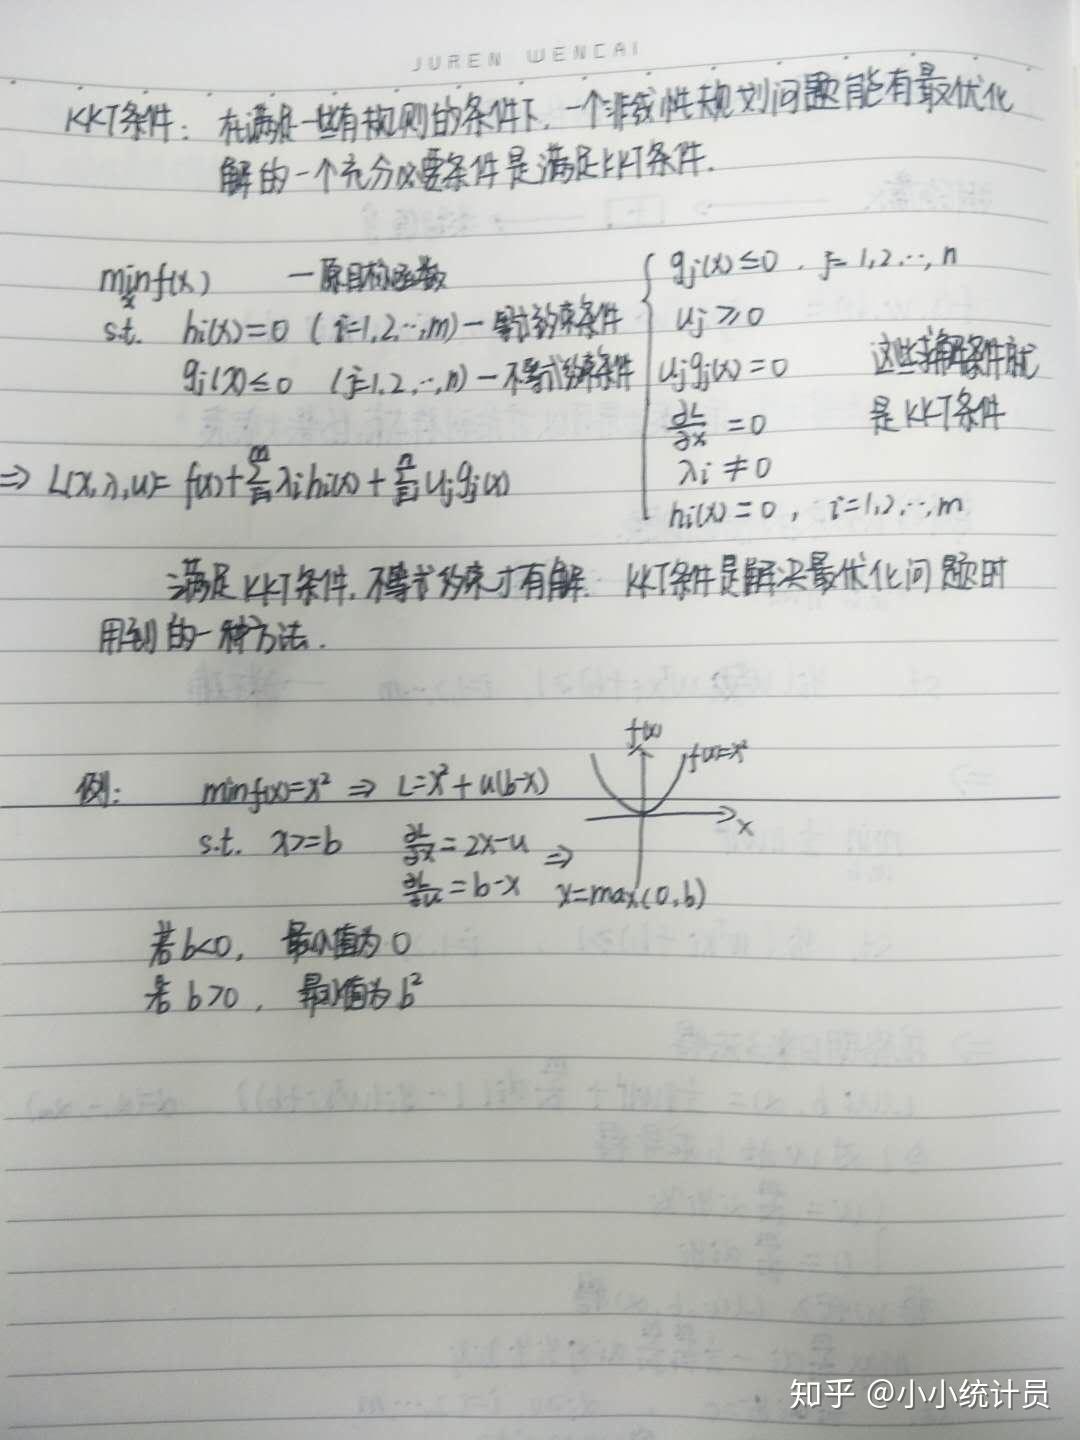 JUREN WENCAI
KKT条件: 在满足一些有规则的条件下,一个非线性规划问题能有最优化
解的一个充分必要条件是满足KKT条件.
min f(x) —原目标函数
x
s.t. hi(x)=0 (i=1,2,…,m) —等式约束条件
gj(x)≤0 (j=1,2,…,n) —不等式约束条件
⇒ L(x,λ,u)= f(x)+∑λihi(x)+∑ujgj(x)
gj(x)≤0, j=1,2,…,n
uj≥0
ujgj(x)=0
∂L/∂x=0
λi≠0
hi(x)=0, i=1,2,…,m
这些求解条件就
是KKT条件
满足KKT条件,不等式约束才有解. KKT条件是解决最优化问题时
用到的一种方法.
例: minf(x)=x² ⇒ L=x²+u(b-x)
s.t. x>=b ∂L/∂x=2x-u ⇒
∂L/∂u=b-x x=max(0,b)
f(x)
f(x)=x²
x
若b<0, 最小值为0
若b>0, 最小值为b²
知乎 @小小统计员